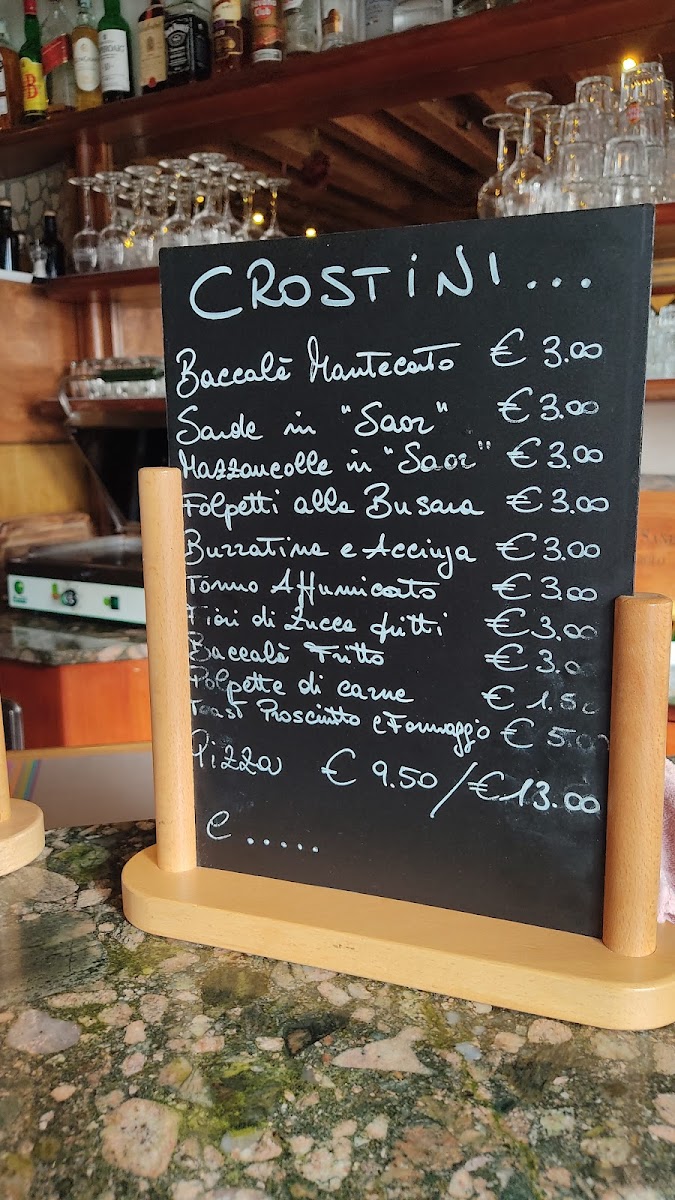 CROSTINI...
Baccalà Mantecato € 3.00
Sarde in "Saor" € 3.00
Mazzancolle in "Saor" € 3.00
Folpetti alla Busara € 3.00
Burratina e Acciuga € 3.00
Tonno Affumicato € 3.00
Fiori di Zucca fritti € 3.00
Baccalà Fritto € 3.0
Polpette di carne € 1.50
Toast Prosciutto e Formaggio € 5.00
Pizza € 9.50/€13.00
e.....